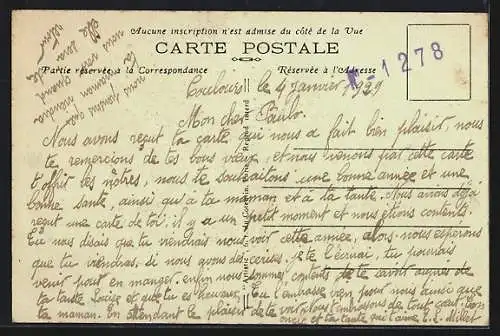 Aucune inscription n'est admise du côté de la Vue
CARTE POSTALE
Partie réservée à la Correspondance
Réservée à l'Adresse
F-1278
Toulouse, le 4 Janvier 1929
Mon cher Paulo.
Nous avons reçut ta carte qui nous a fait bien plaisir, nous
te remercions de tes bons vœux, et nous venons par cette carte
t'offrir les nôtres, nous te souhaitons une bonne année et une
bonne santé, ainsi qu'à ta maman et à ta tante. Nous avons déjà
reçut une carte de toi, il y a un petit moment et nous étions contents.
Tu nous desais que tu viendras nous voir cette année, alors nous esperons
que tu viendras. si nous avons des cerises, je te l'écrirai, tu pourrais
venir pour en manger. enfin nous sommes contents de te savoir auprès de
ta tante Louise et que tu es heureux. Tu l'embrasse bien pour nous ainsi que
ta maman. En attendant le plaisir de te voir Nous t'embrassons de tout cœur. Ton
oncle et ta tante qui t'aime Millet